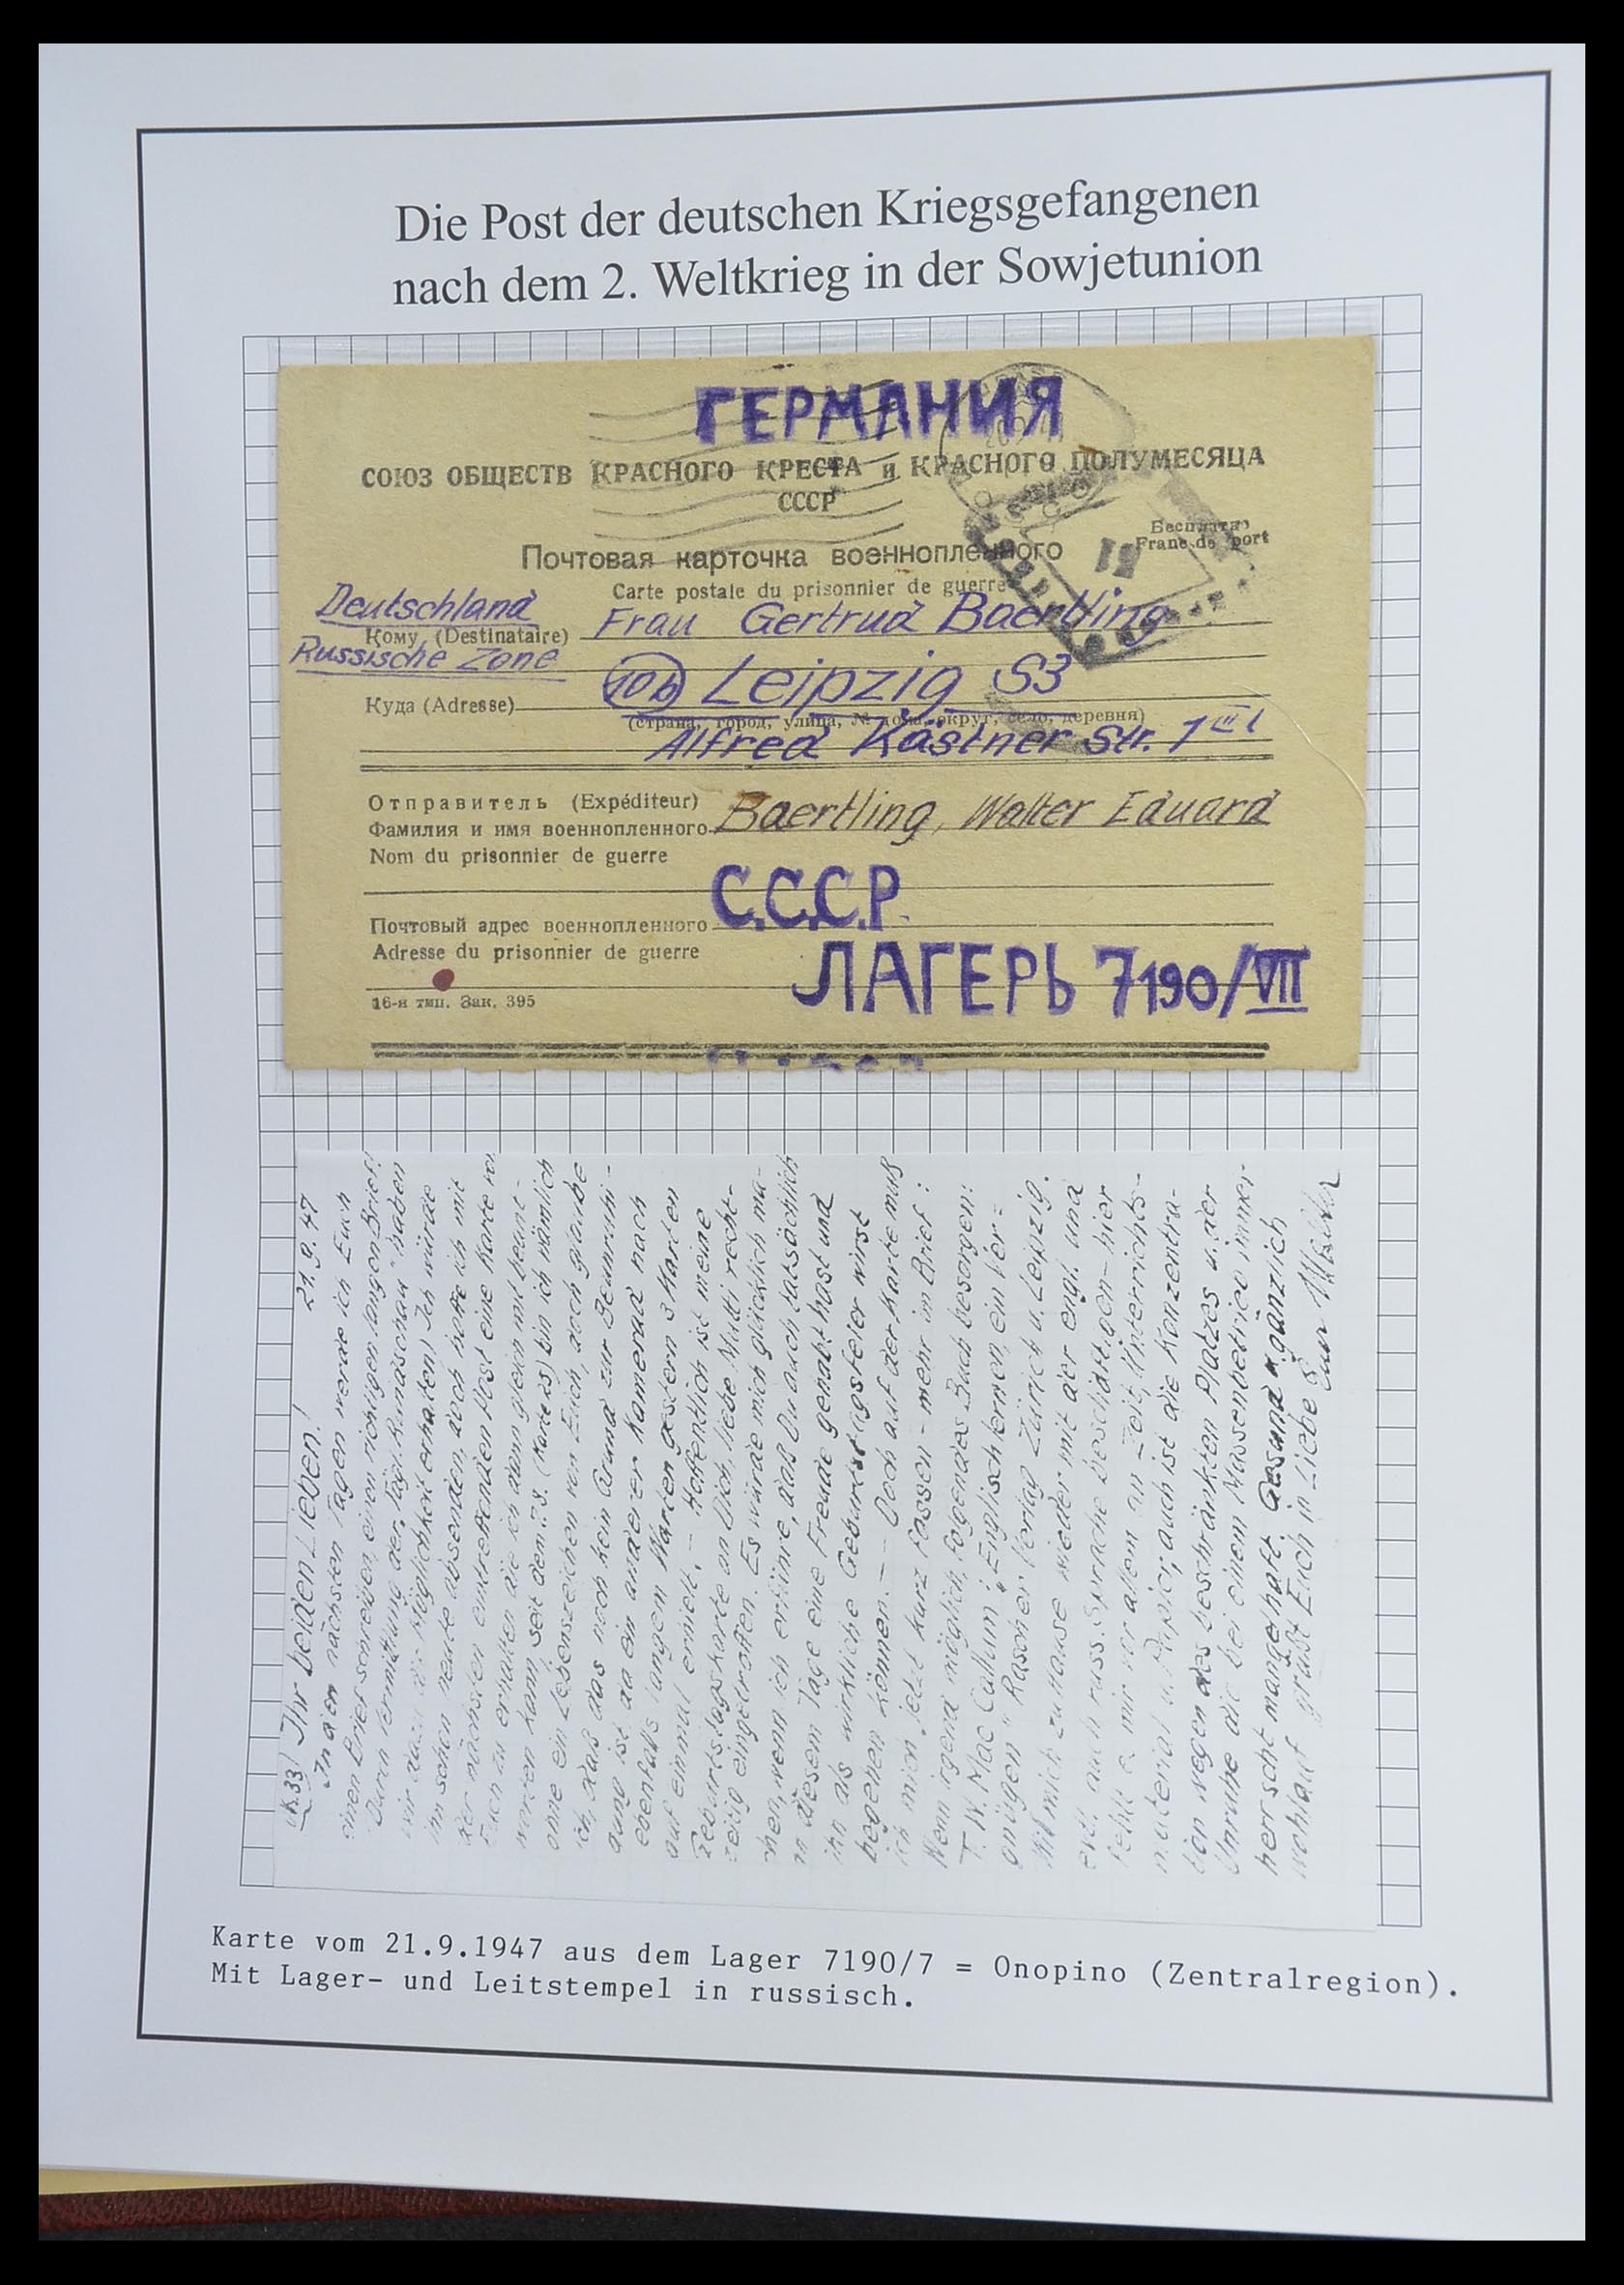 Die Post der deutschen Kriegsgefangenen
nach dem 2. Weltkrieg in der Sowjetunion
ГЕРМАНИЯ
СОЮЗ ОБЩЕСТВ КРАСНОГО КРЕСТА и КРАСНОГО ПОЛУМЕСЯЦА
СССР
Бесплатно
Franc de port
Почтовая карточка военнопленного
Carte postale du prisonnier de guerre
Deutschland
Кому (Destinataire) Frau Gertrud Baertling
Russische Zone
10b Leipzig S3
Куда (Adresse)
(страна, город, улица, № дома, округ, село, деревня)
Alfred Kästner Str. 1 III l
Отправитель (Expéditeur)
Фамилия и имя военнопленного Baertling, Walter Eduard
Nom du prisonnier de guerre
С.С.С.Р.
Почтовый адрес военнопленного
Adresse du prisonnier de guerre
ЛАГЕРЬ 7190/VII
16-я тип. Зак. 395
K.33) Ihr beiden Lieben! 21.9.47
In den nächsten Tagen werde ich Euch
einen Brief schreiben, einen richtigen langen Brief!
Durch Vermittlung der "Tägl. Rundschau" haben
wir dazu die Möglichkeit erhalten) Ich würde
ihn schon heute absenden, doch hoffe ich mit
der nächsten eintreffenden Post eine Karte von
Euch zu erhalten die ich dann gleich mit beant-
worten kann. Seit dem (Karte) bin ich nämlich
ohne ein Lebenszeichen von Euch, doch glaube
ich, daß das noch kein Grund zur Beunruhi-
gung ist, da ein anderer Kamerad nach
ebenfalls langem Warten gestern 3 Karten
auf einmal erhielt. – Hoffentlich ist meine
Geburtstagskarte an Dich, liebe Mutti recht-
zeitig eingetroffen. Es würde mich glücklich ma-
chen, wenn ich erführe, daß Du auch tatsächlich
an diesem Tage eine Freude gehabt hast und
ihn als wirkliche Geburtstagsfeier wirst
begehen können. – – Doch auf der Karte muß
ich mich jetzt kurz fassen – mehr im Brief:
Wenn irgend möglich, folgendes Buch besorgen:
T. W. Mac Callum: "Englisch lernen, ein Ver-
gnügen" Rascher Verlag Zürich u. Leipzig.
Will mich zu Hause wieder mit der engl. und
evtl. auch russ. Sprache beschäftigen – hier
fehlt es mir vor allem an Zeit, Unterrichts-
material u. Papier, auch ist die Konzentra-
tion wegen des beschränkten Platzes u. der
Unruhe die bei einem Massenbetrieb immer
herrscht mangelhaft. Gesund u. gänzlich
wohlauf grüßt Euch in Liebe Euer Walter
Karte vom 21.9.1947 aus dem Lager 7190/7 = Onopino (Zentralregion).
Mit Lager- und Leitstempel in russisch.